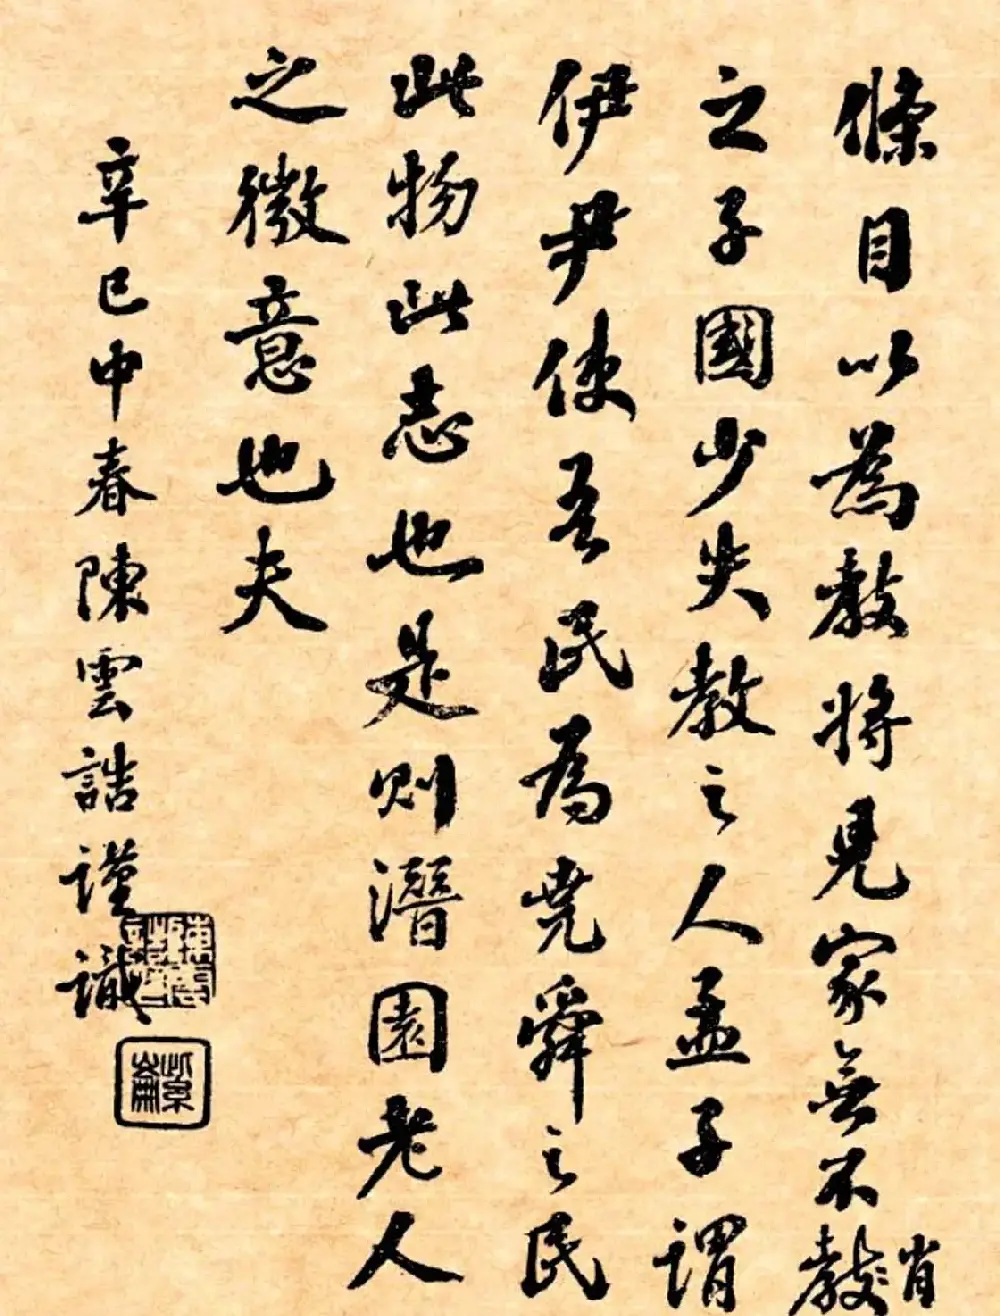 條目以為教將見家無不教肖
之子國少失教之人孟子謂
伊尹使吾民為堯舜之民
此物此志也是則潛園老人
之微意也夫
辛巳中春陳雲誥謹識